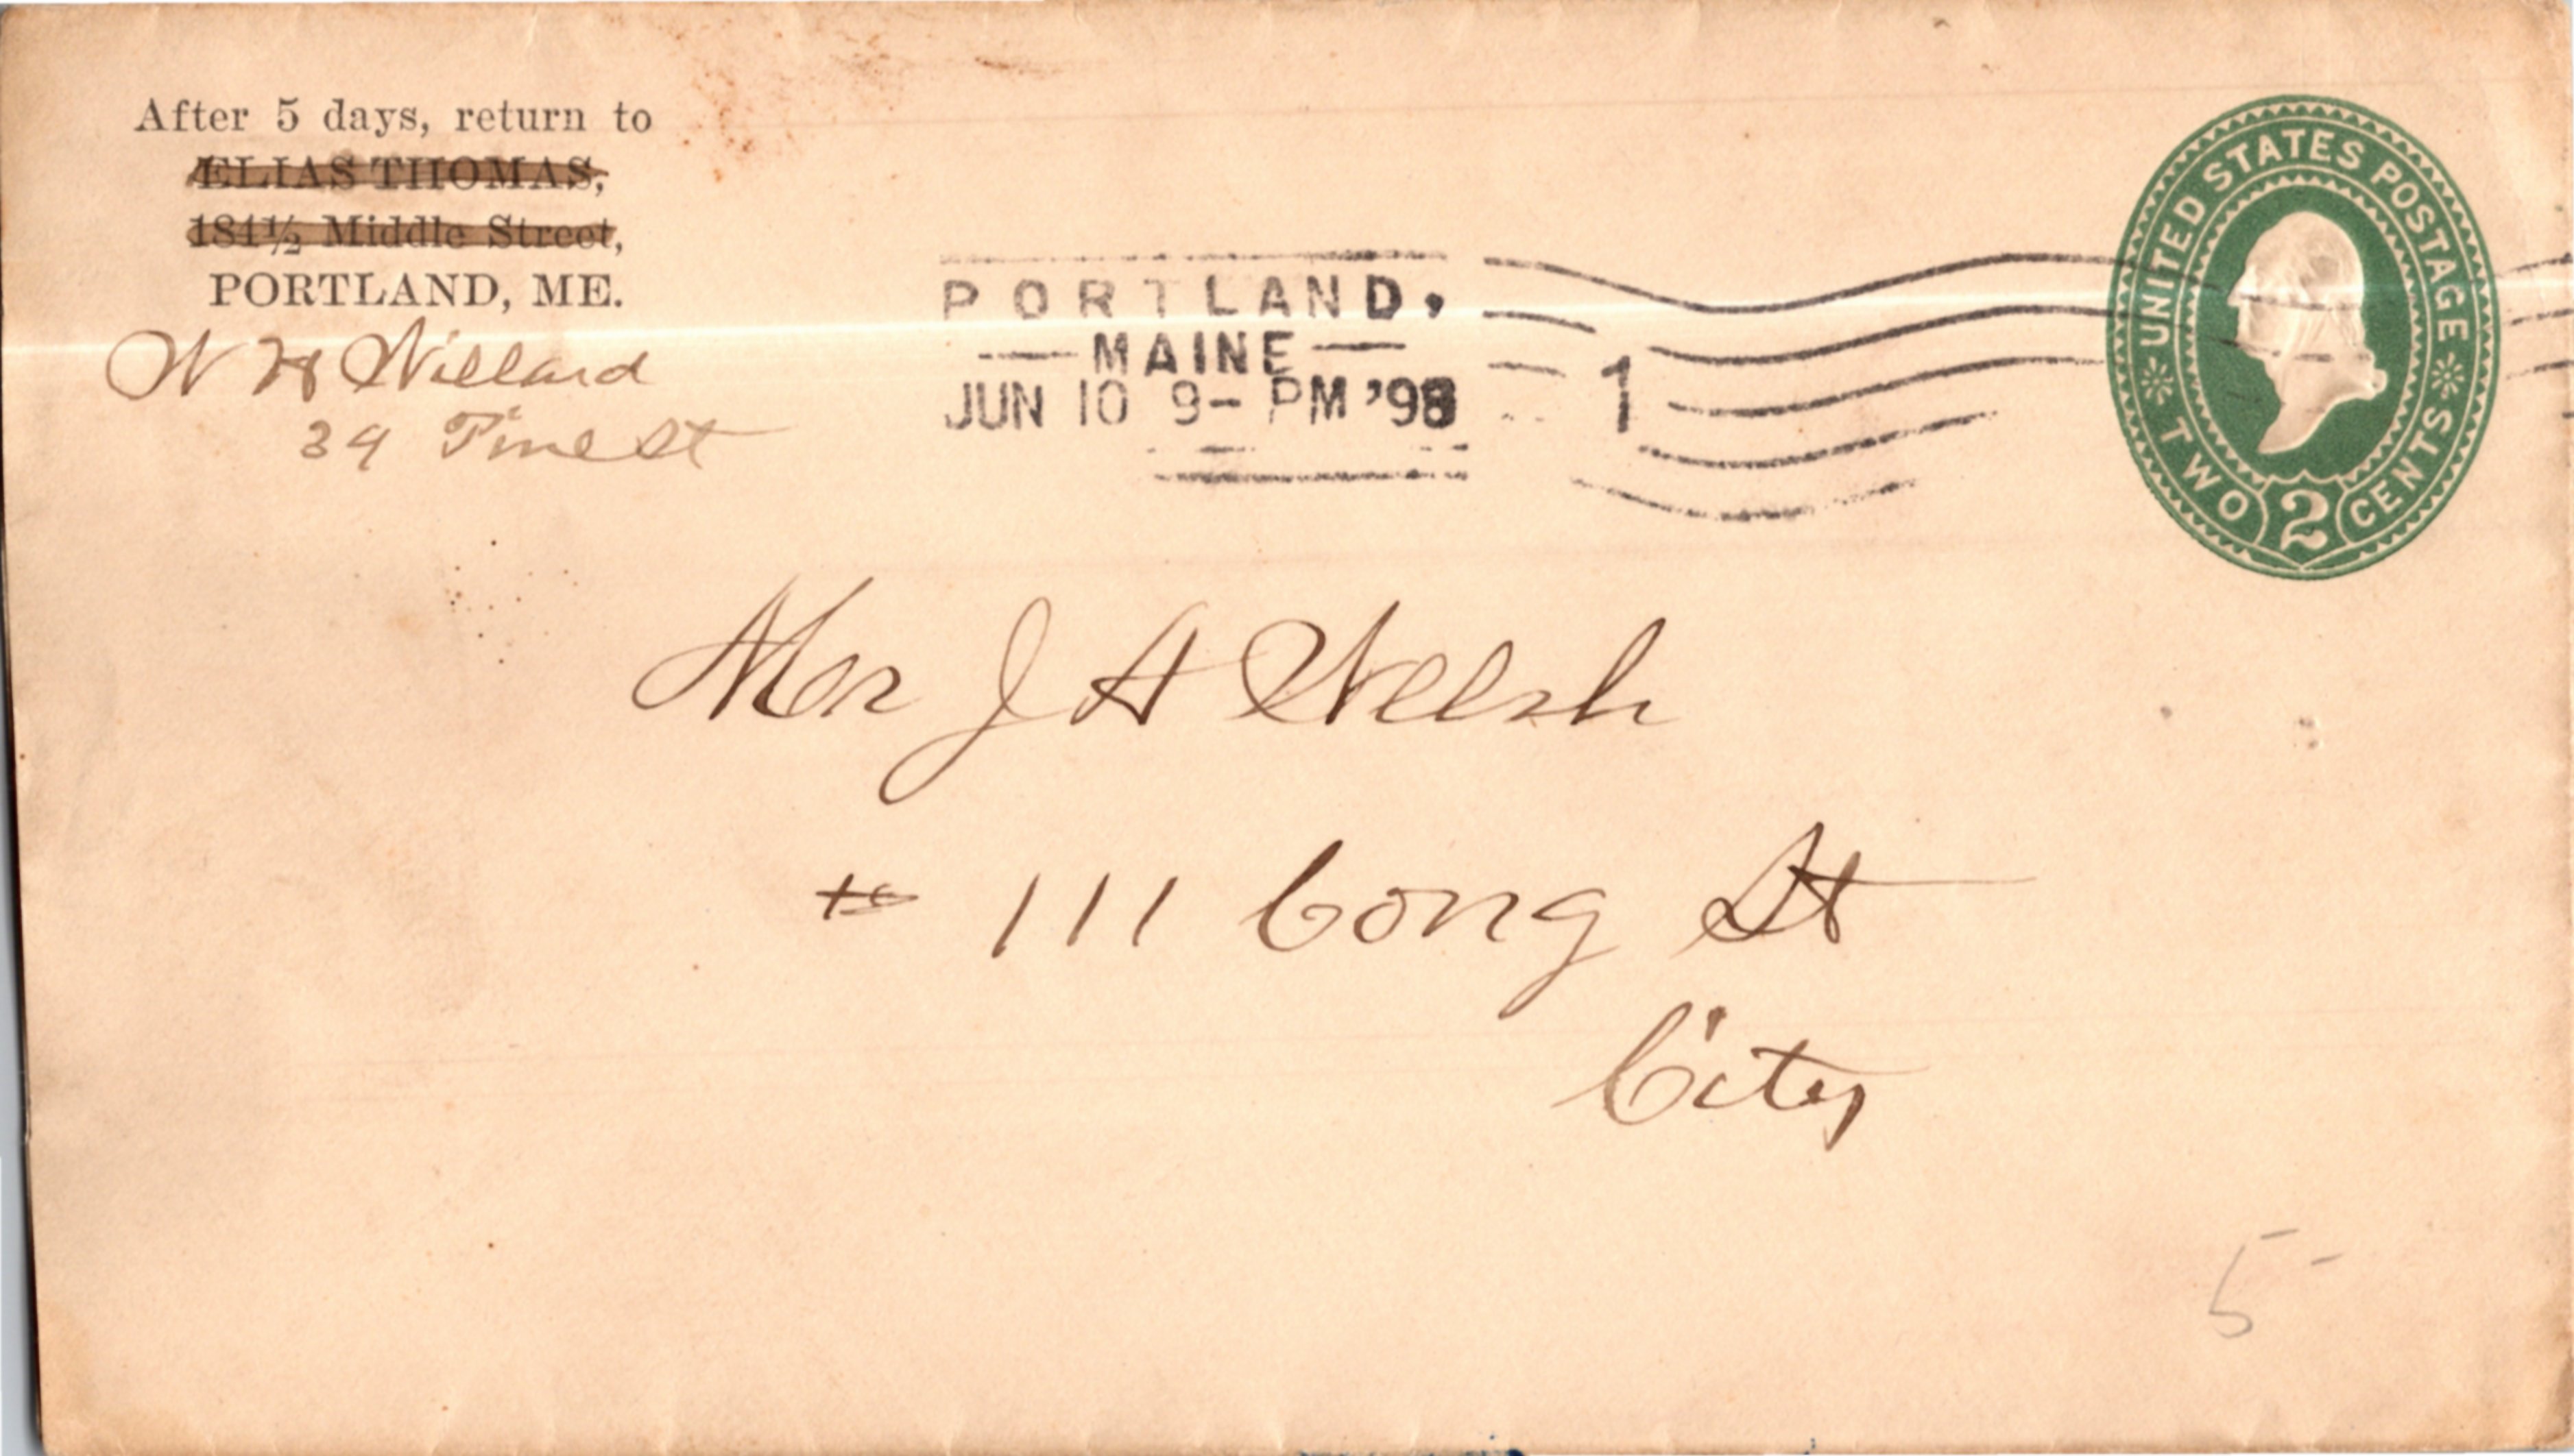 After 5 days, return to
ELIAS THOMAS,
184½ Middle Street,
PORTLAND, ME.
W H Willard
39 Pine St
PORTLAND,
MAINE
JUN 10 9- PM '98
1
UNITED STATES POSTAGE
TWO 2 CENTS
Mr J A Welsh
# 111 Cong St
City
5-